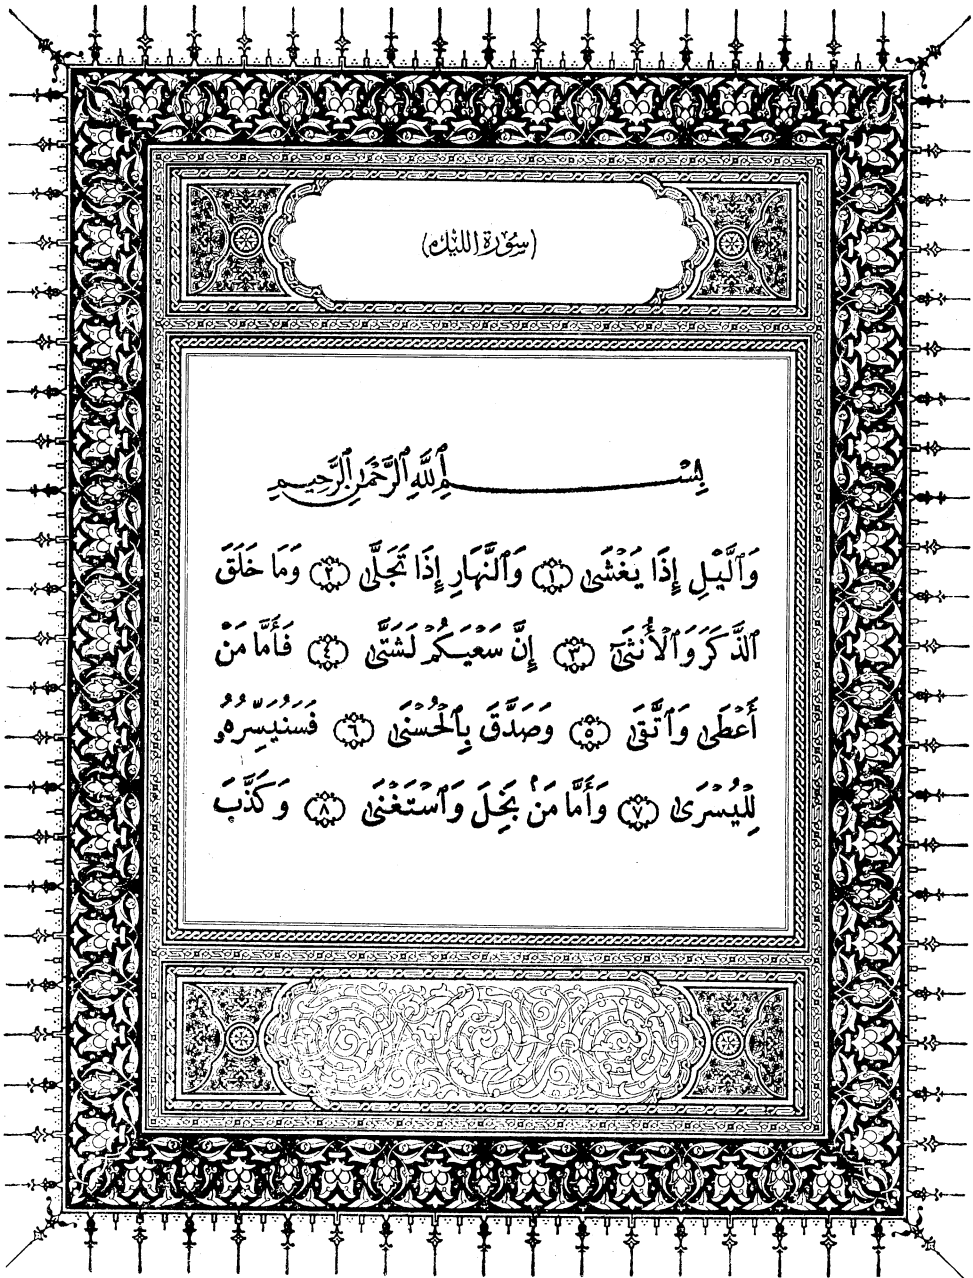 (سُورَة اللَّيْل)
بِسْمِ ٱللَّهِ ٱلرَّحْمَٰنِ ٱلرَّحِيمِ
وَٱلَّيْلِ إِذَا يَغْشَىٰ ۝١ وَٱلنَّهَارِ إِذَا تَجَلَّىٰ ۝٢ وَمَا خَلَقَ
ٱلذَّكَرَ وَٱلْأُنثَىٰٓ ۝٣ إِنَّ سَعْيَكُمْ لَشَتَّىٰ ۝٤ فَأَمَّا مَنْ
أَعْطَىٰ وَٱتَّقَىٰ ۝٥ وَصَدَّقَ بِٱلْحُسْنَىٰ ۝٦ فَسَنُيَسِّرُهُۥ
لِلْيُسْرَىٰ ۝٧ وَأَمَّا مَنۢ بَخِلَ وَٱسْتَغْنَىٰ ۝٨ وَكَذَّبَ